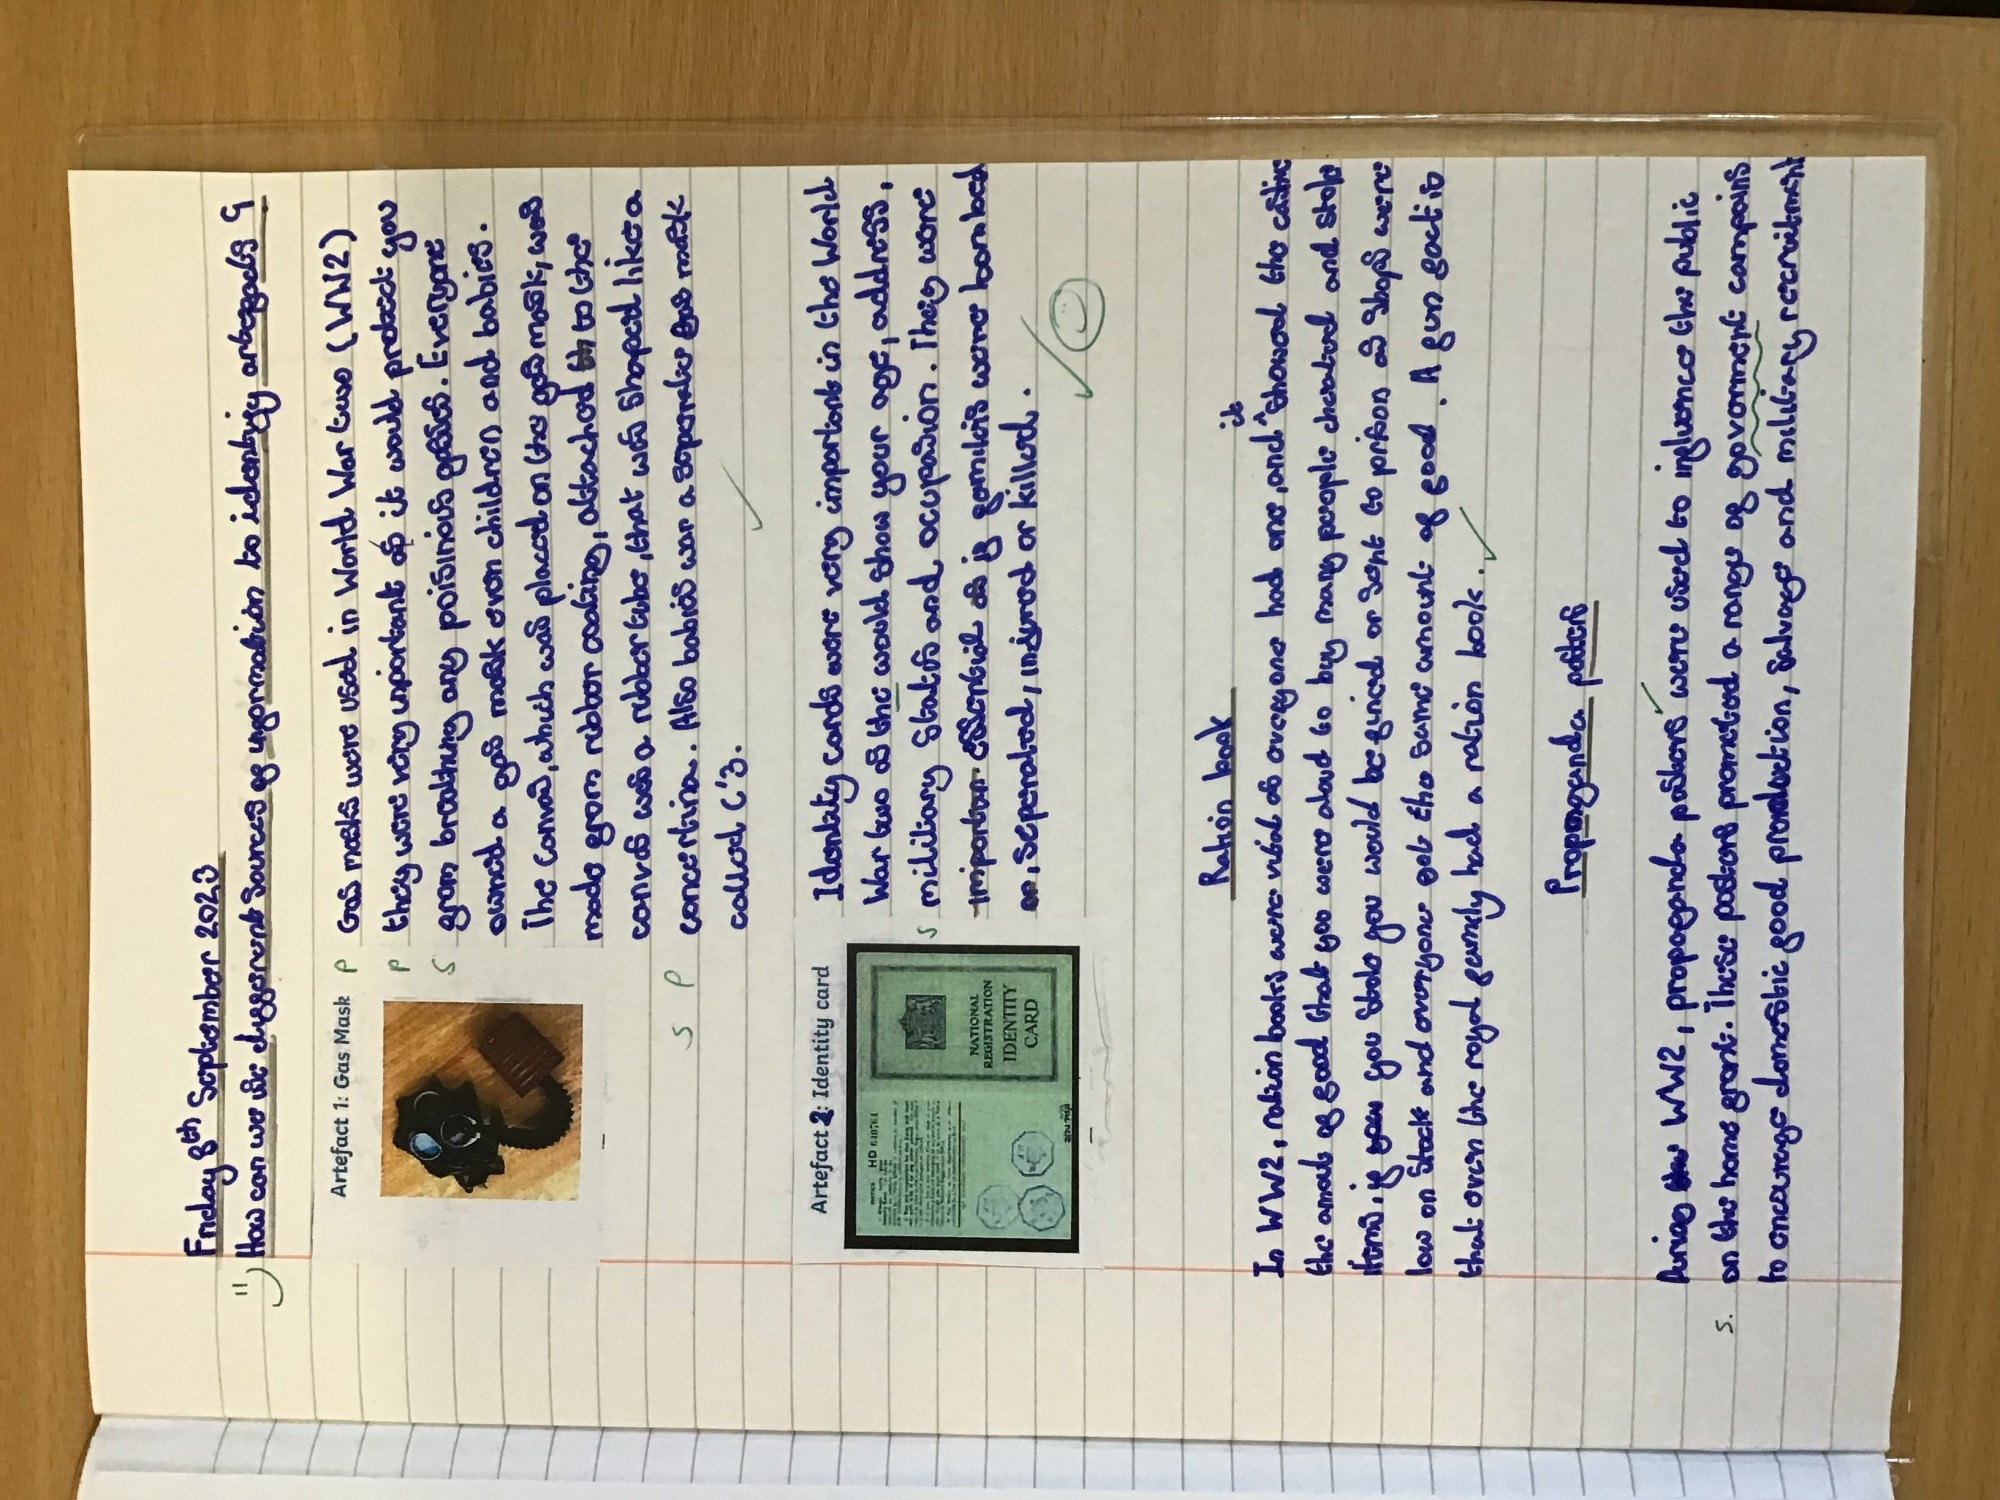 Friday 8th September 2023
How can we use different sources of information to identify artefacts ?
Artefact 1: Gas Mask
P
Gas masks were used in World War two (WW2)
P
they were very important as it would protect you
S
from breathing any poisinios gasses. Everyone
owned a gas mask even children and babies.
The canvas, which was placed on the gas mask, was
made from rubber coating, attached to the
convas was a rubber tube, that was shaped like a
S P
concertina. Also babies war a seperate gas mask
called C'3.
Artefact 2: Identity card
NOTICE
HD
NATIONAL
REGISTRATION
IDENTITY
CARD
Identity cards were very important in the World
War two as the would show your age, address,
S
military status and occupasion. They were
importan essential as if familis were bombed
or, seperated, injured or killed.
Ration book
In WW2, ration books were vital as everyone had one, and it showed the
the amout of food that you were aloud to buy many people cheated and stole
items, if you you stole you would be fined or sent to prison as shops were
low on stock and everyone got the same amount of food. A fun fact is
that even the royal family had a ration book.
Propoganda posters
During WW2, propoganda posters were used to influence the public
S.
on the home front. These posters promoted a range of govornment campains
to encourage domestic food production, salvage and military recruitment